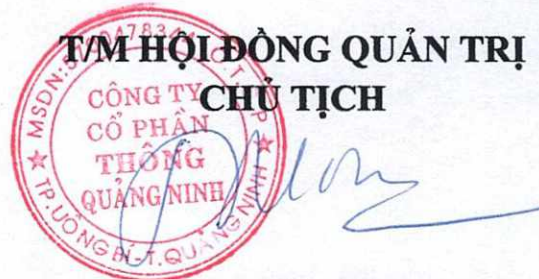 T/M HỘI ĐỒNG QUẢN TRỊ
CHỦ TỊCH
CÔNG TY
CỔ PHẦN
THÔNG
QUẢNG NINH
TP.UÔNG BÍ-T.QUẢNG NINH